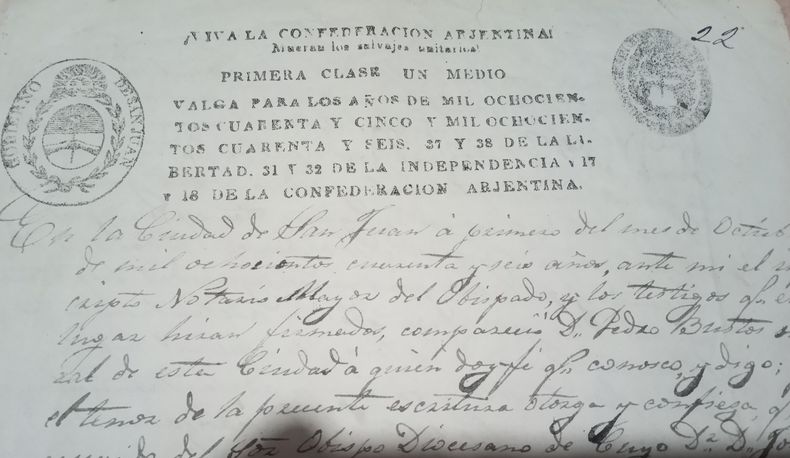 ¡VIVA LA CONFEDERACION ARJENTINA!
Mueran los salvajes unitarios!
22
PRIMERA CLASE UN MEDIO
VALGA PARA LOS AÑOS DE MIL OCHOCIEN-
TOS CUARENTA Y CINCO Y MIL OCHOCIEN-
TOS CUARENTA Y SEIS. 37 Y 38 DE LA LI-
BERTAD. 31 Y 32 DE LA INDEPENDENCIA Y 17
Y 18 DE LA CONFEDERACION ARJENTINA.
GOBIERNO DE SAN JUAN
En la Ciudad de San Juan á primero del mes de Octub
de mil ochocientos cuarenta y seis años, ante mi el
cripto Notario Mayor del Obispado, y los testigos q.e
lugar hiran firmados, comparecio D.n Pedro Bustos
ral de esta Ciudad á quien doy fé q.e conosco, y digo;
el tenor de la presente escritura otorga y confiesa, q
del Sor. Obispo Diocesano de Cuyo D.r D.n